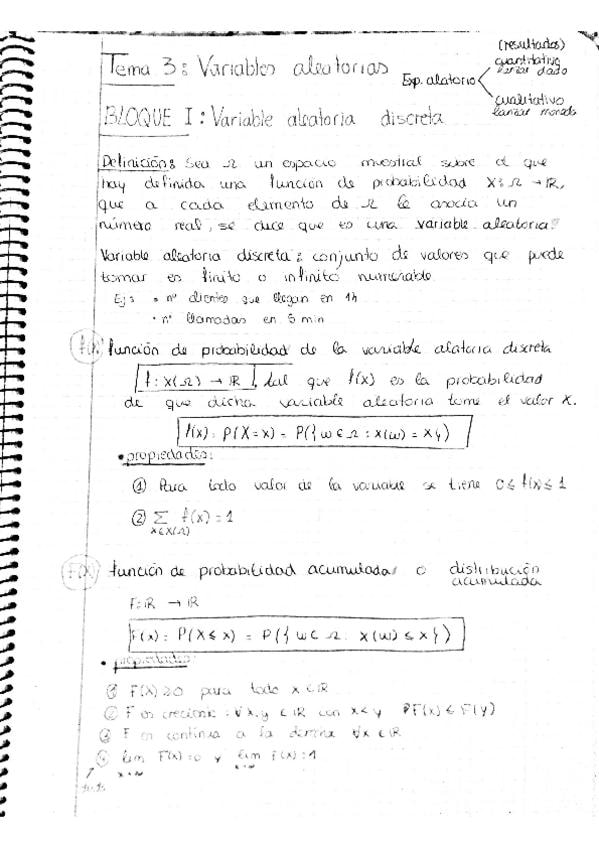 Tema 3: Variables aleatorias
Exp. alatorio
(resultados)
cuantitativo
lanzar dado
cualitativo
lanzar moneda
BLOQUE I: Variable aleatoria discreta
Definición: Sea Ω un espacio muestral sobre el que
hay definida una función de probabilidad X: Ω → ℝ,
que a cada elemento de Ω le asocia un
número real, se dice que es una variable aleatoria.
Variable aleatoria discreta: conjunto de valores que puede
tomar es finito o infinito numerable.
Ej: • nº clientes que llegan en 1h
• nº llamadas en 5 min
f(x) función de probabilidad de la variable alatoria discreta
f: X(Ω) → ℝ, tal que f(x) es la probabilidad
de que dicha variable aleatoria tome el valor x.
f(x) = P(X=x) = P({ω∈Ω : X(ω) = x})
• propiedades:
① Para todo valor de la variable se tiene 0≤f(x)≤1
② ∑ f(x) = 1
x∈X(Ω)
F(x) función de probabilidad acumulada o distribución
acumulada
F: ℝ → ℝ
F(x) = P(X≤x) = P({ω∈Ω : X(ω) ≤ x})
• propiedades:
① F(x) ≥0 para todo x∈ℝ
② F es creciente: ∀x,y ∈ℝ con x<y F(x) ≤ F(y)
③ F es continua a la derecha ∀x∈ℝ
④ lim F(x)=0 y lim F(x)=1